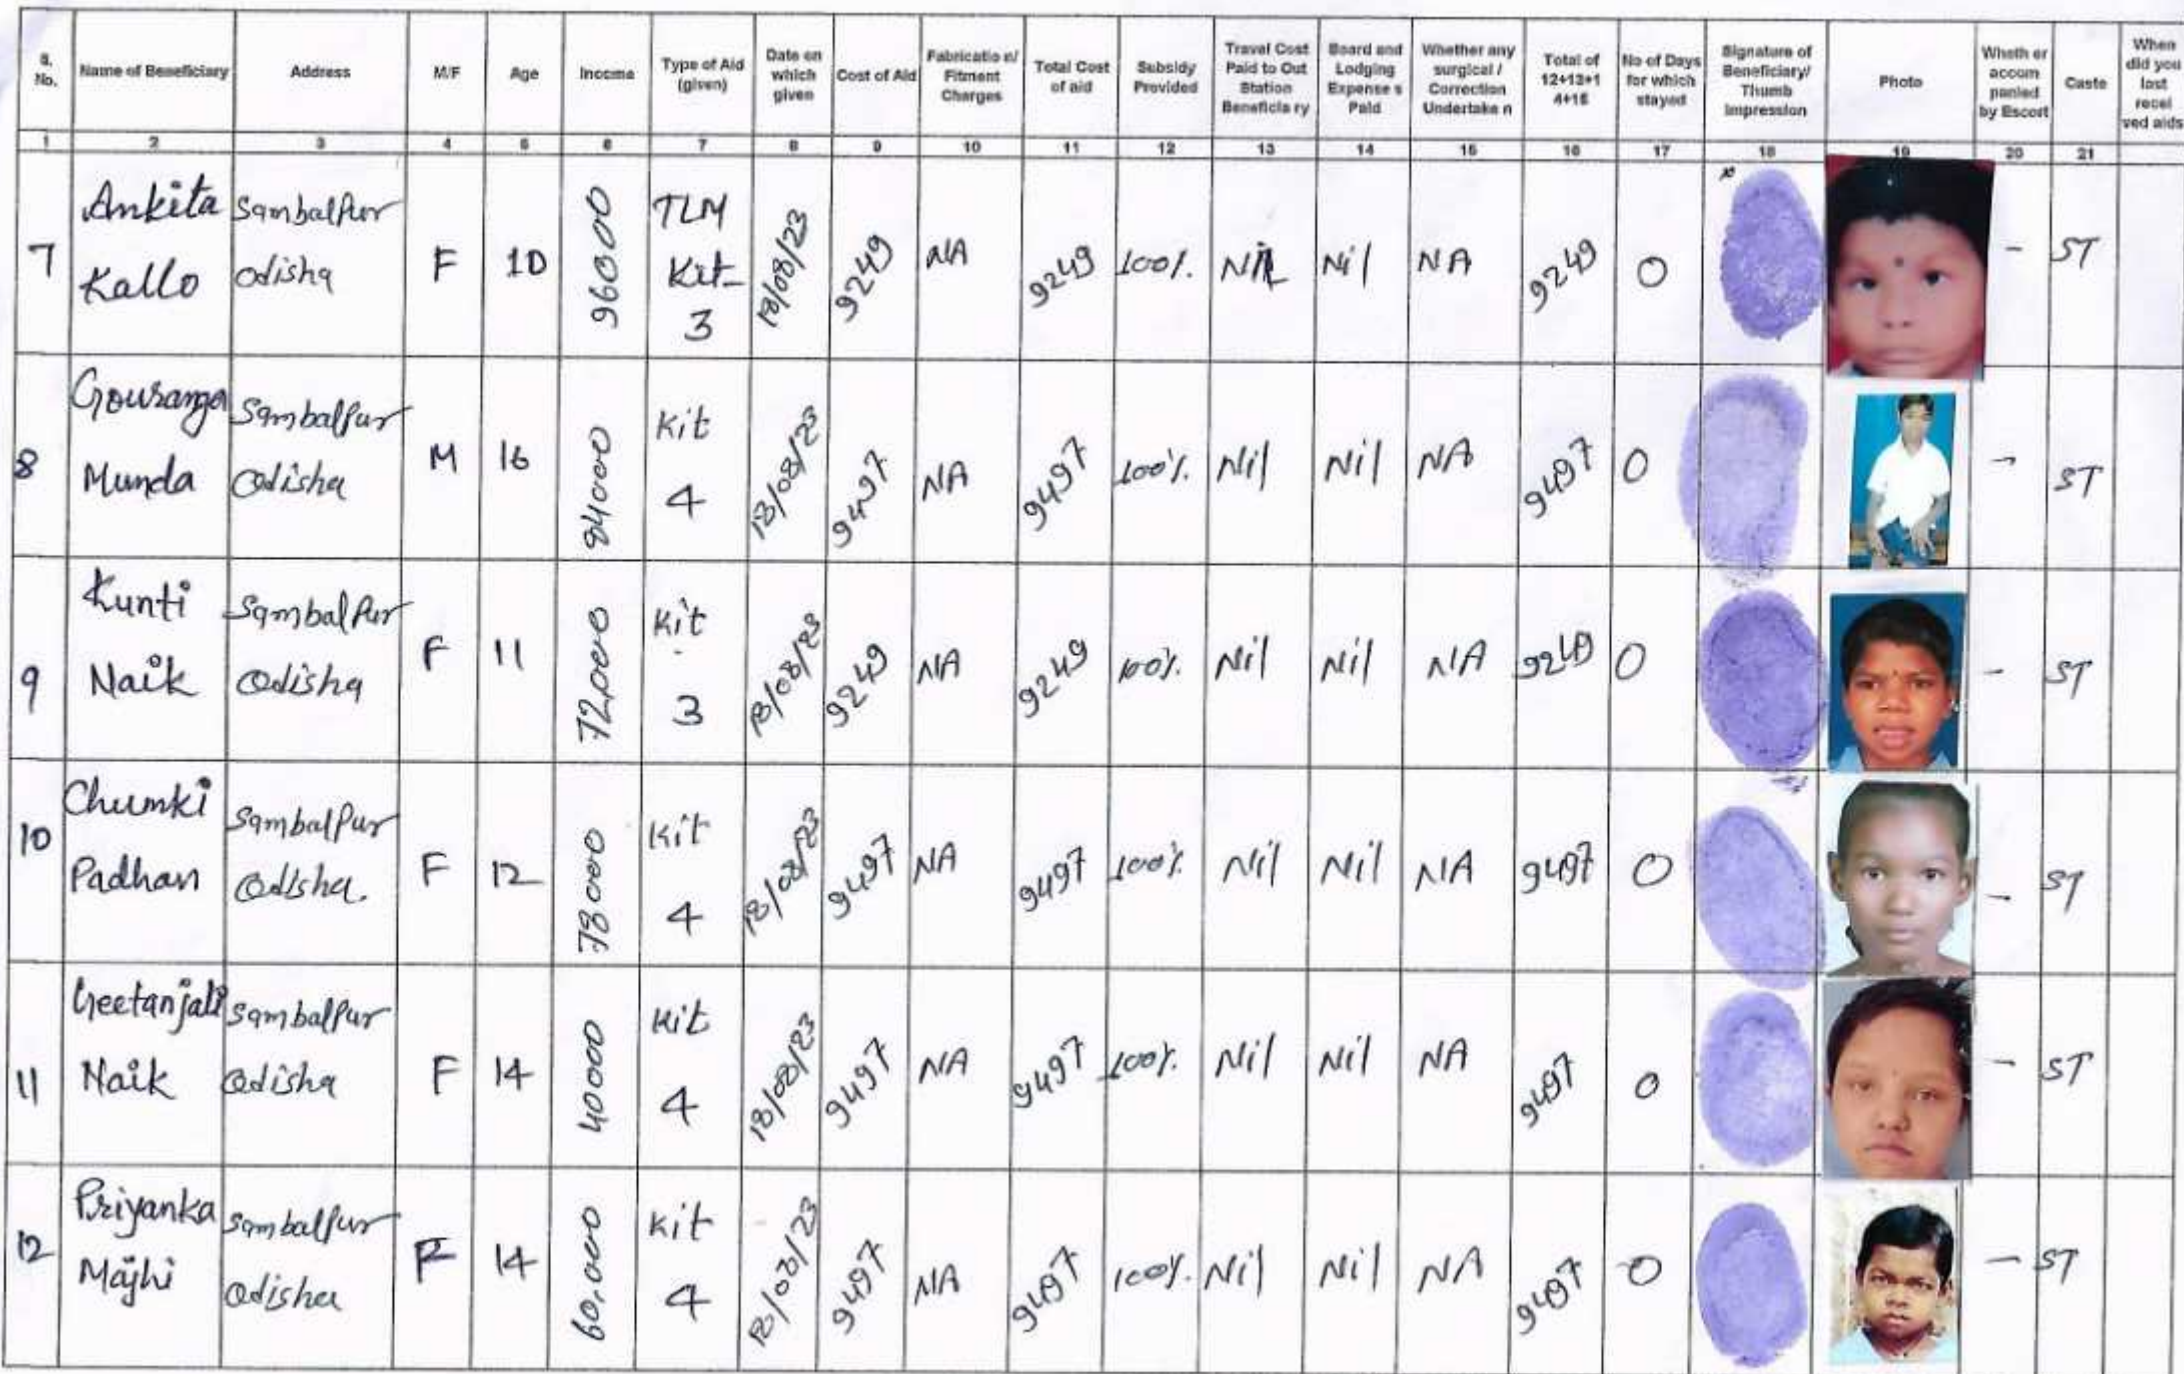 S. No. Name of Beneficiary Address M/F Age Income Type of Aid (given) Date on which given Cost of Aid Fabricatio n/ Fitment Charges Total Cost of aid Subsidy Provided Travel Cost Paid to Out Station Beneficia ry Board and Lodging Expense s Paid Whether any surgical / Correction Undertake n Total of 12+13+1 4+15 No of Days for which stayed Signature of Beneficiary/ Thumb Impression Photo Wheth er accom panied by Escort Caste When did you last recei ved aids
1 2 3 4 5 6 7 8 9 10 11 12 13 14 15 16 17 18 19 20 21
7 Ankita Kallo Sambalpur Odisha F 10 96000 TLM Kit- 3 18/08/23 9249 NA 9249 100% Nil Nil NA 9249 0 - ST
8 Gouranga Munda Sambalpur Odisha M 16 84000 Kit 4 18/08/23 9497 NA 9497 100% Nil Nil NA 9497 0 - ST
9 Kunti Naik Sambalpur Odisha F 11 72,000 Kit 3 18/08/23 9249 NA 9249 100% Nil Nil NA 9249 0 - ST
10 Chumki Padhan Sambalpur Odisha. F 12 78000 Kit 4 18/08/23 9497 NA 9497 100% Nil Nil NA 9497 0 - ST
11 Geetanjali Naik Sambalpur Odisha F 14 40000 Kit 4 18/08/23 9497 NA 9497 100% Nil Nil NA 9497 0 - ST
12 Priyanka Majhi Sambalpur Odisha F 14 60,000 Kit 4 18/08/23 9497 NA 9497 100% Nil Nil NA 9497 0 - ST